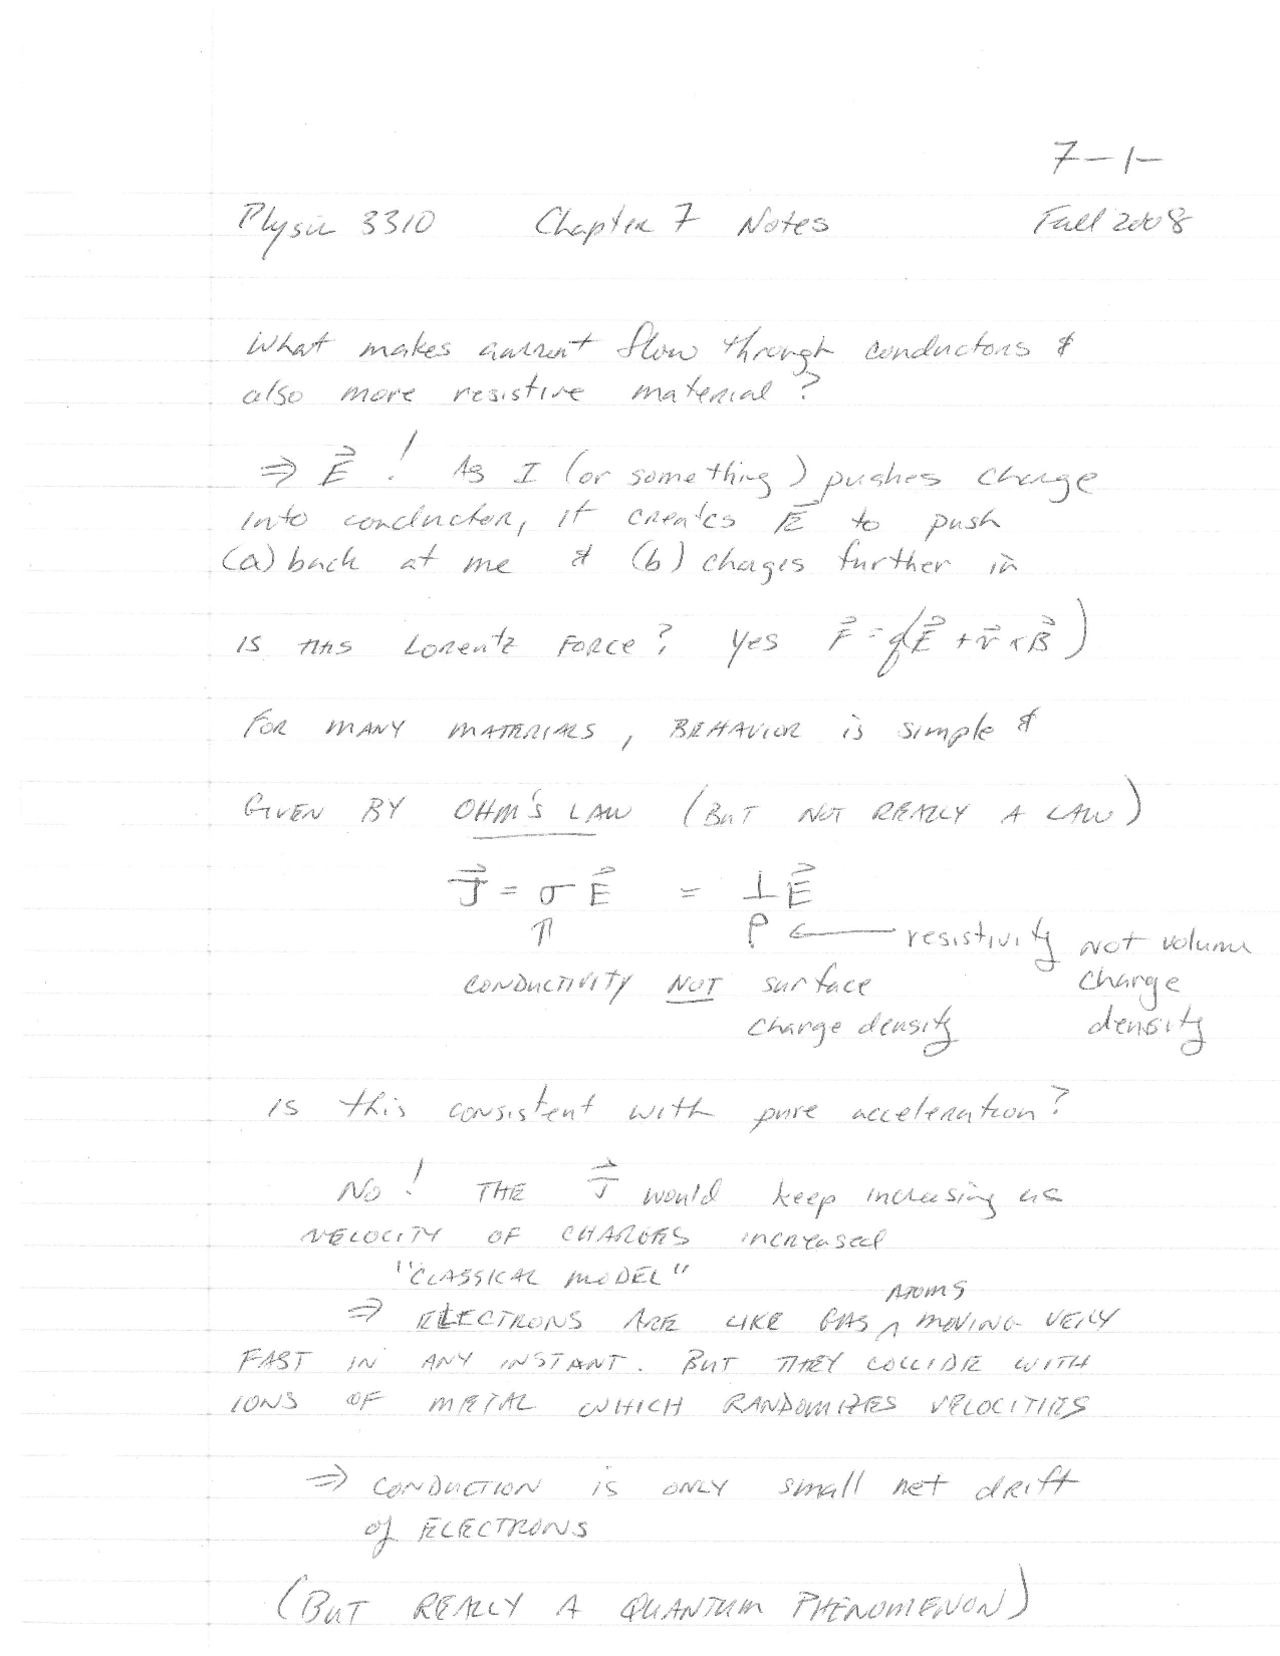 7-1-
Physic 3310 Chapter 7 Notes Fall 2008
What makes current flow through conductors &
also more resistive material?
⇒ E⃗ ! As I (or something) pushes charge
into conductor, it creates E⃗ to push
(a) back at me & (b) charges further in
Is this Lorentz Force? Yes F⃗ = q(E⃗ + v⃗ × B⃗)
FOR MANY MATERIALS, BEHAVIOR is simple &
GIVEN BY OHM'S LAW (BUT NOT REALLY A LAW)
J⃗ = σ E⃗ = 1/ρ E⃗
⇑ ρ ← resistivity NOT volume
CONDUCTIVITY NOT surface charge
charge density density
Is this consistent with pure acceleration?
No! THE J⃗ would keep increasing as
VELOCITY OF CHARGES increased
"CLASSICAL MODEL"
ATOMS
⇒ ELECTRONS ARE LIKE GAS ^ MOVING VERY
FAST IN ANY INSTANT. BUT THEY COLLIDE WITH
IONS OF METAL WHICH RANDOMIZES VELOCITIES
⇒ CONDUCTION is ONLY small net drift
of ELECTRONS
(BUT REALLY A QUANTUM PHENOMENON)